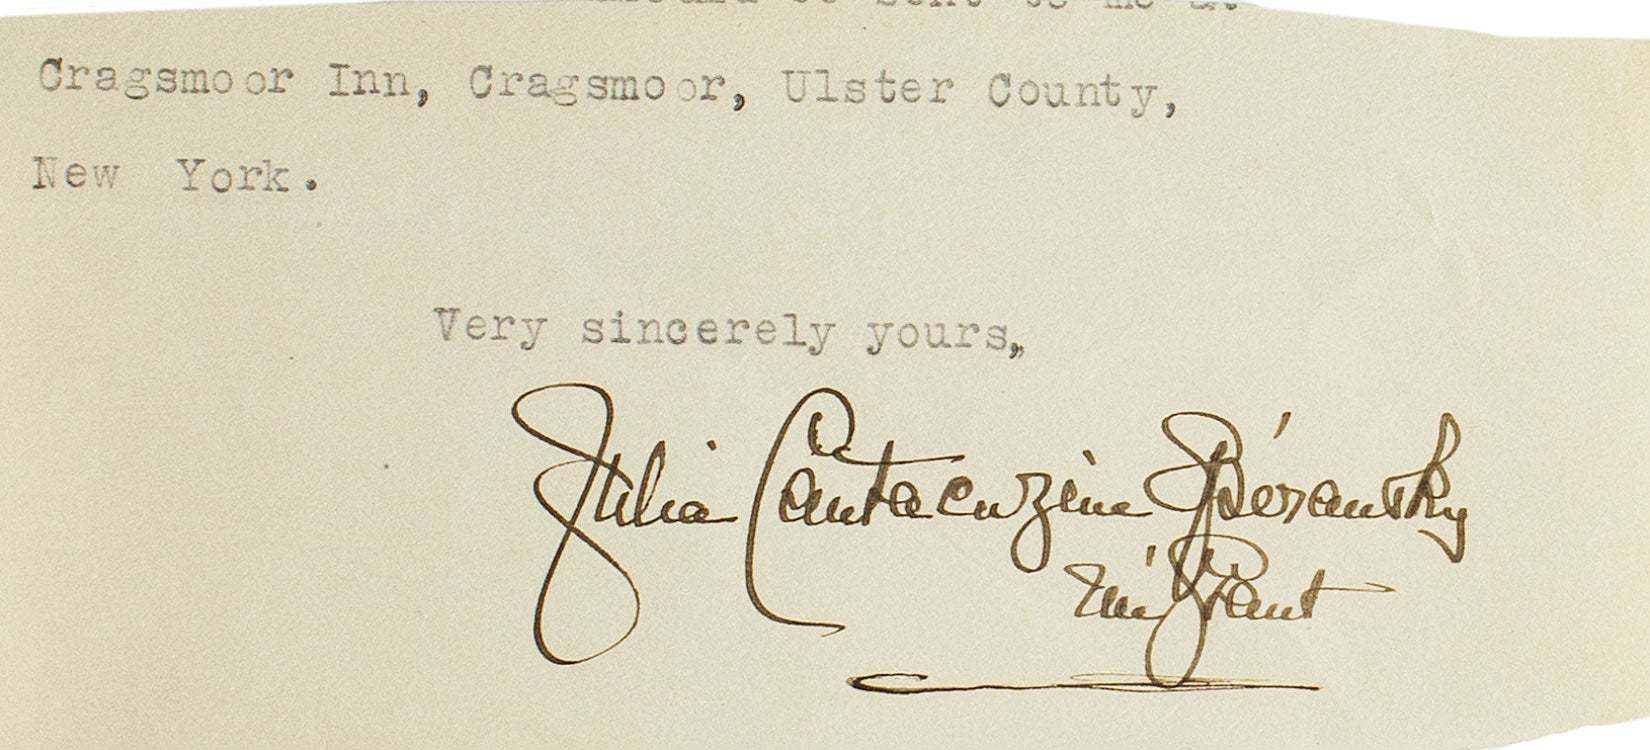 sent to me at
Cragsmoor Inn, Cragsmoor, Ulster County,
New York.
Very sincerely yours,
Julia Cantacuzène Spéransky
née Grant